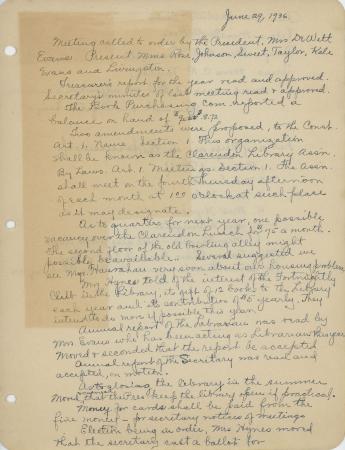 June 29, 1936.
Meeting called to order by the President, Mrs DeWitt
Evans. Present: Mmes Rose, Johnson, Sweet, Taylor, Kale
Evans and Livingston.
Treasurer's report for the year read and approved.
Secretary's minutes of last meeting read & approved.
The Book Purchasing com. reported a
balance on hand of
Two amendments were proposed, to the Const.
Art. 1. Name Section 1. This organization
shall be known as the Clarendon Library Assn.
By Laws. Art. 1 Meetings. Section 1. The Assn.
shall meet on the fourth Thursday afternoon
of each month at 1:00 o'clock at such place
as it may designate.
As to quarters for next year, one possible
vacancy over the Clarendon Lunch for 75 a month.
The second floor of the old bowling alley might
possibly be available. Several suggested we
see Mgr. Hanrahan very soon about our housing problem
Mrs Hynes told of the interest of the Fortnightly
Club in the Library, its gift of 12 books to the Library
each year and the contribution of $5 yearly. They
intend to do more if possible this year.
Annual report of the librarian was read by
Mrs Evans who has been acting as librarian this year
Moved & seconded that the report be accepted
Annual report of the Secretary was read and
accepted, on motion.
As to closing the library in the summer
Moved that the Pres keep the library open if practical.
Money for cards shall be paid from the
fine money - for secretary notices of meetings
Election being in order, Mrs Hynes moved
that the secretary cast a ballot for